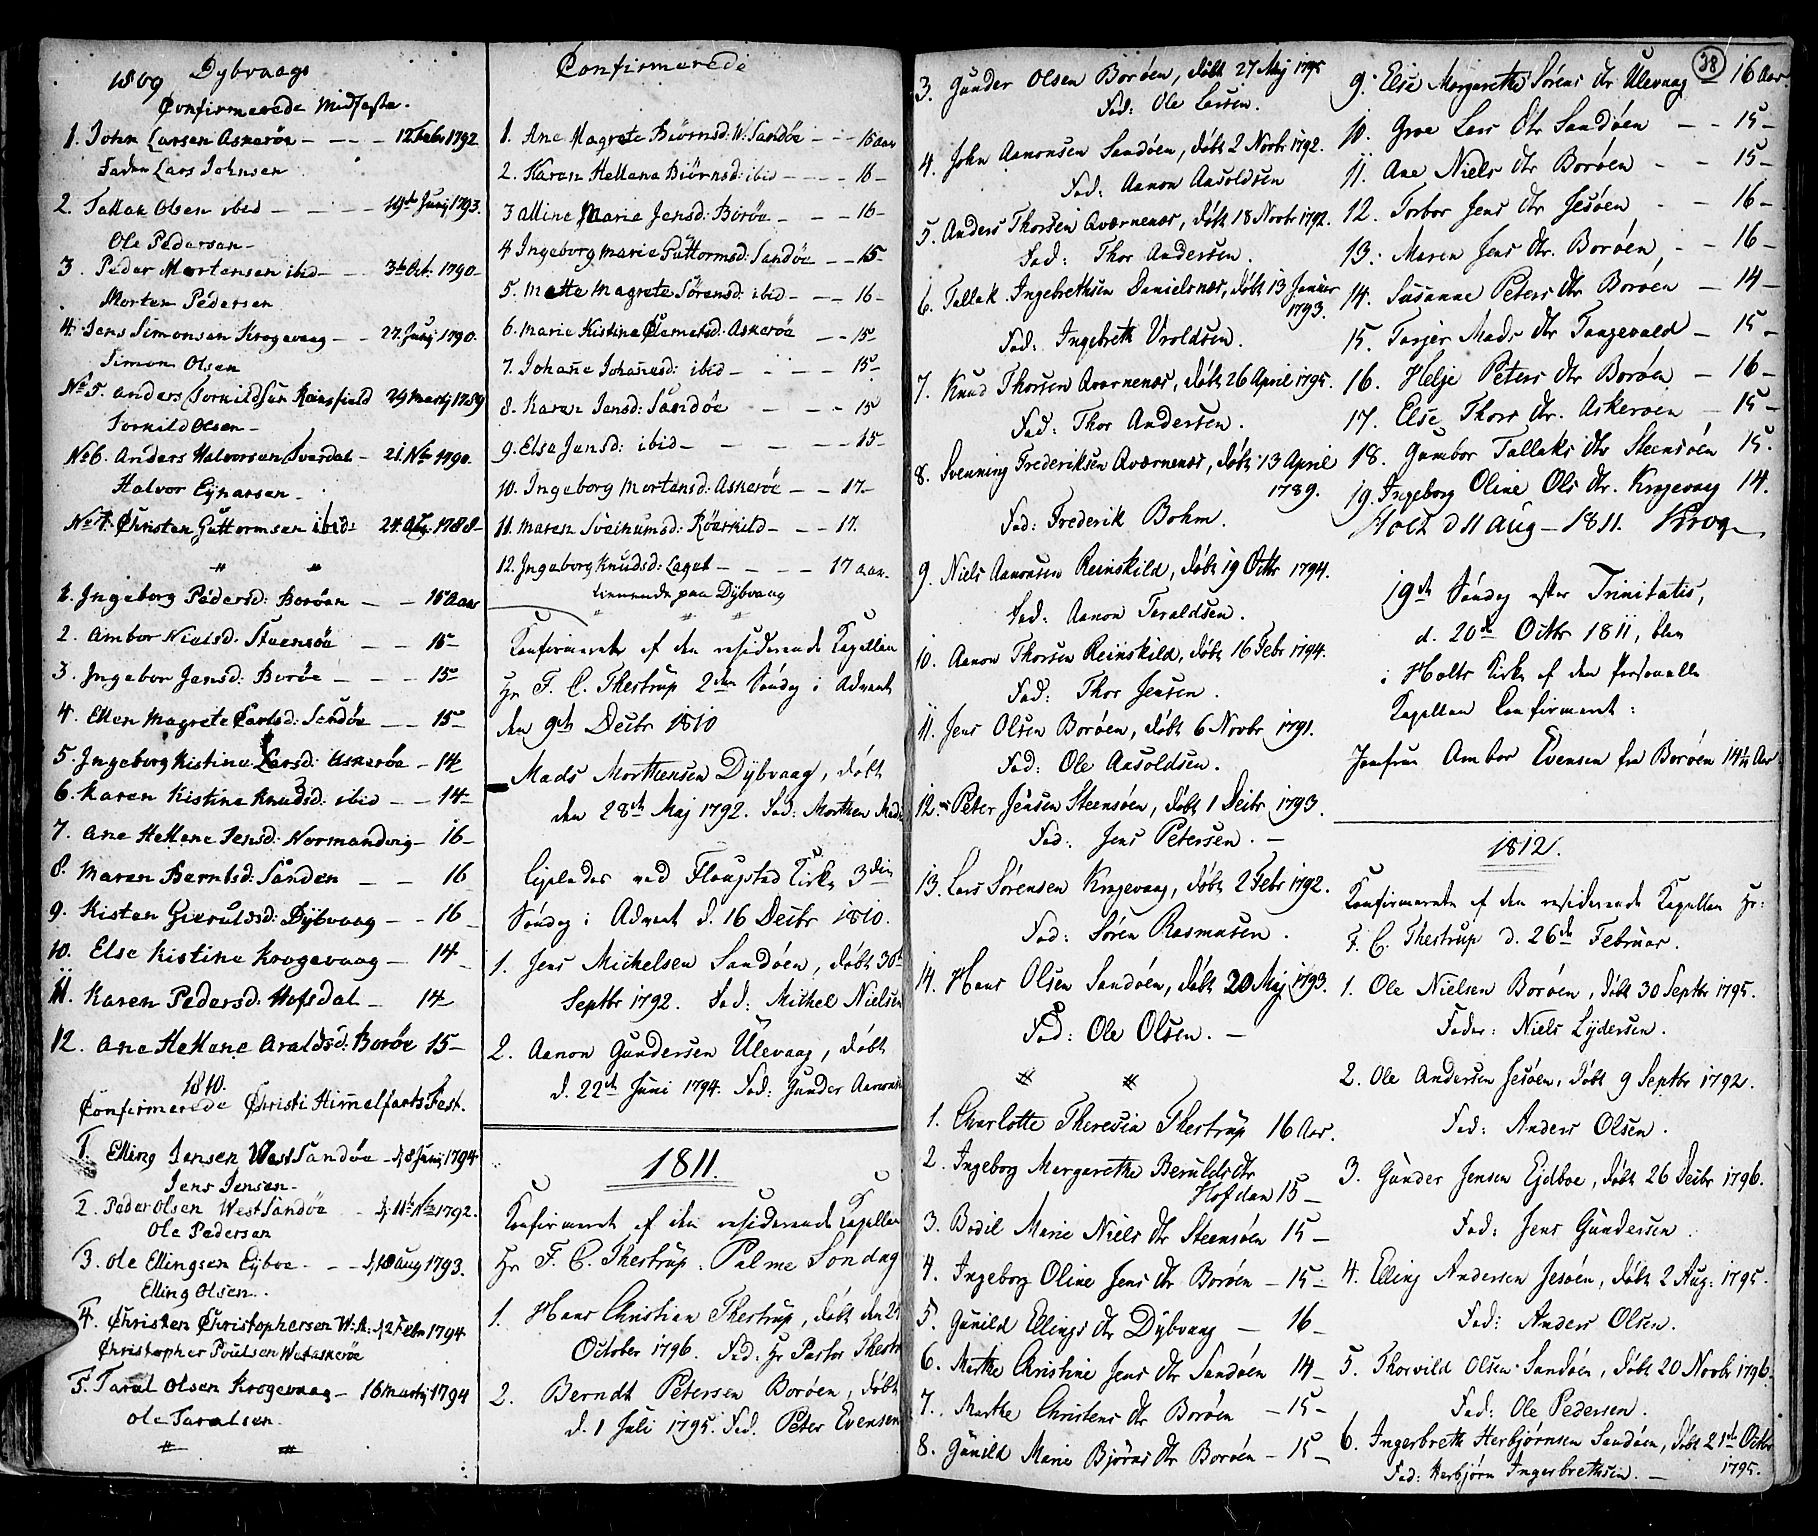 1809 Dybvaags
Confirmerede Midfaste.
1. John Larsen Askerøe - - - 12 Febr 1792
Faderen Lars Johnsen
2. Tallak Olsen ibid - - - 19de Junij 1793.
Ole Pedersen -
3. Peder Mortensen ibid - - 3die Oct. 1790 -
Morten Pedersen
4. Jens Simonsen Krogevaag - - 27 Junij 1790.
Simon Olsen
No 5. Anders Torkildsen 29 Martij 1789
Torkild Olsen -
No 6. Anders Halvorsen Sverdal - 21 Nov 1790.
Halvor Ejnersen -
No 7. Christen Guttormsen ibid: 24 Aug. 1788 -
1. Ingeborg Pedersd: Borøen - - 16 Aar
2. Ambor Nielsd: Steensøe - - 15 -
3. Ingebor Jensd: Borøe - - - 15 -
4. Ellen Magrete Carlsd: Sandøe - - 15 -
5. Ingeborg Kistine Larsd: Askerøe - 14
6. Karen Kistine Knudsd: ibid - - 14 -
7. Ane Hellene Jensd: Normandvig - 16 -
8. Maren Berntsd: Sanden - - 16
9. Kisten Gieruldsd: Dybvaag - - 16 -
10. Else Kistine Krogevaag - 14 -
11. Karen Pedersd: Hofsdal - 14 -
12. Ane Hellene Araldsd: Borøe 15 -
1810.
Confirmerede Christi Himmelfarts Fest.
1. Elling Jensen West Sandøe - d 8 Junij 1794
Jens Jensen -
2. Peder Olsen West Sandøe - d. 11te Nov 1792.
Ole Pedersen
3. Ole Ellingsen Eyboe - - d. 18 Aug 1793.
Elling Olsen.
4. Christen Christophersen W: A: d 2 Febr 1794
Christopher Poulsen W: Askerøe
5. Taral Olsen Krogevaag - 16 Martij 1794
Ole Taralsen.
Confirmerede
1. Ane Magrete Biörnsd: W. Sandöe - - 16 aar
2. Karen Hellena Biörnsd: ibid - - - - 16 -
3 Alline Marie Jensd: Borøe - - - 16 -
4 Ingeborg Marie Guttormsd: Sandøe - - 15 -
5. Mette Magrete Sörensd: ibid - - - 16 -
6. Marie Kistine Clemetsd: Askerøe - - 15 -
7. Johanne Johannesd: ibid - - - - 15 -
8. Karen Jensd: Sandøe - - - 15
9. Elsa Jensd: ibid - - - - - 15 -
10. Ingeborg Mortensd: Askerøe - - 17 -
11. Maren Sveinumsd: Röerkild - - - 17.
12. Ingeborg Knudsd: Laget - - - - 17 aar.
tienende paa Dybvaag
Confirmerede af den residerende Capellan
Hr F. C. Thestrup 2den Søndag i Advent
den 9de Decbr 1810
Mads Morthensen Dybvaag, døbt
den 28de Maj 1792. Fad: Morthen Mads
Ligeledes ved Flaugstad Kirke 3die
Søndag i Advent d. 16 Decbr 1810.
1. Jens Michelsen Sandøen, døbt 30te
Septbr 1792. Fad: Michel Nielsen
2. Aanon Gundersen Ulevaag, døbt
d. 22de Juni 1794. Fad: Gunder Aanons
1811.
Confirmeret af den residerende Capellan
Hr F. C. Thestrup. Palme Søndag
1. Hans Christian Thestrup, døbt den 25
October 1796. Fad: Hr Pastor Thestr
2. Berndt Petersen Borøen, døbt
d. 1 Juli 1795. Fad. Peter Evensen
38
3. Gunder Olsen Borøen, døbt 27 Maj 1795
Fad: Ole Larsen.
4. John Aanonsen Sandøen, døbt 2 Novbr 1792.
Fad: Aanon Aasoldsen
5. Anders Thorsen Qværnenæs, døbt 18 Novbr 1792.
Fad: Thor Andersen.
6. Tallak Ingebrethsen Danielsnæs, døbt 13 Januar
1793.
Fad: Ingebreth Vroldsen.
7. Knud Thorsen Qværnenæs, døbt 26 April 1795.
Fad: Thor Andersen.
8. Svenning Frederiksen Qværnenæs, døbt 13 April
1789.
Fad: Frederik Bohm.
9. Niels Aanonsen Reinskild, døbt 19 Octbr 1794.
Fad: Aanon Taraldsen.
10. Aanon Thorsen Reinskild, døbt 16 Febr 1794.
Fad: Thor Jensen.
11. Jens Olsen Borøen, døbt 6 Novbr 1791.
Fad: Ole Aasoldsen.
12. Peter Jensen Steensøen, døbt 1 Decbr 1793.
Fad: Jens Petersen. -
13. Lars Sørensen Krogevaag, døbt 2 Febr 1792.
Fad: Søren Rasmusen.
14. Hans Olsen Sandøen, døbt 20 Maj 1793.
Fad: Ole Olsen. -
1. Charlotte Theresia Thestrup 16 Aar.
2. Ingeborg Margarethe Berulds dtr
Hofdan 15 -
3. Bodil Marie Niels dtr Steensøen 15 -
4. Ingeborg Oline Jens dtr Borøen - 15 -
5. Gunild Ellings dtr Dybvaag - 16 -
6. Marthe Christine Jens dtr Sandøen 14 -
7. Marthe Christens dtr Borøen - 15 -
8. Gunild Marie Bjørns dtr Borøen - 15 -
9. Else Margarethe Sørens dtr Ulevaag 16 Aar.
10. Groe Lars dtr Sandøen - - 15 -
11. Ane Niels dtr Borøen - - 15 -
12. Torbor Jens dtr Jesøen - - 16 -
13. Maren Jens dtr Borøen, - - 16 -
14. Susanne Peters dtr Borøen - 14 -
15. Tarjer Mads dtr Tangevald - 15 -
16. Helje Peters dtr Borøen - 16 -
17. Else Thors dtr. Askerøen - 15 -
18. Gumbor Tallaks dtr Steensøen 15.
19. Ingeborg Oline Ols dtr. Krogevaag 14.
Holt d 11 Aug - 1811. Krog
19de Søndag efter Trinitatis,
d. 20de Octbr 1811, blev
i Holts Kirke af den Personelle
Capellan Confirmeret:
Jomfrue Ambor Evensen fra Borøen 14½ Aar
1812.
Confirmerede af den residerende Capellan Hr:
F. C. Thestrup d. 26de Februar.
1. Ole Nielsen Borøen, døbt 30 Septbr 1795.
Fader: Niels Lydersen.
2. Ole Andersen Jesøen, døbt 9 Septbr 1792.
Fad: Anders Olsen.
3. Gunder Jensen Ejdboe, døbt 26 Decbr 1796.
Fad: Jens Gundersen
4. Elling Andersen Jesøen, døbt 2 Aug: 1795.
Fad: Anders Olsen.
5. Thorvild Olsen Sandøen, døbt 20 Novbr 1796.
Fad: Ole Pedersen.
6. Ingerbreth Herbjørnsen Sandøen, døbt 21de Octbr
1795.
Fad: Herbjørn Ingerbrethsen. -